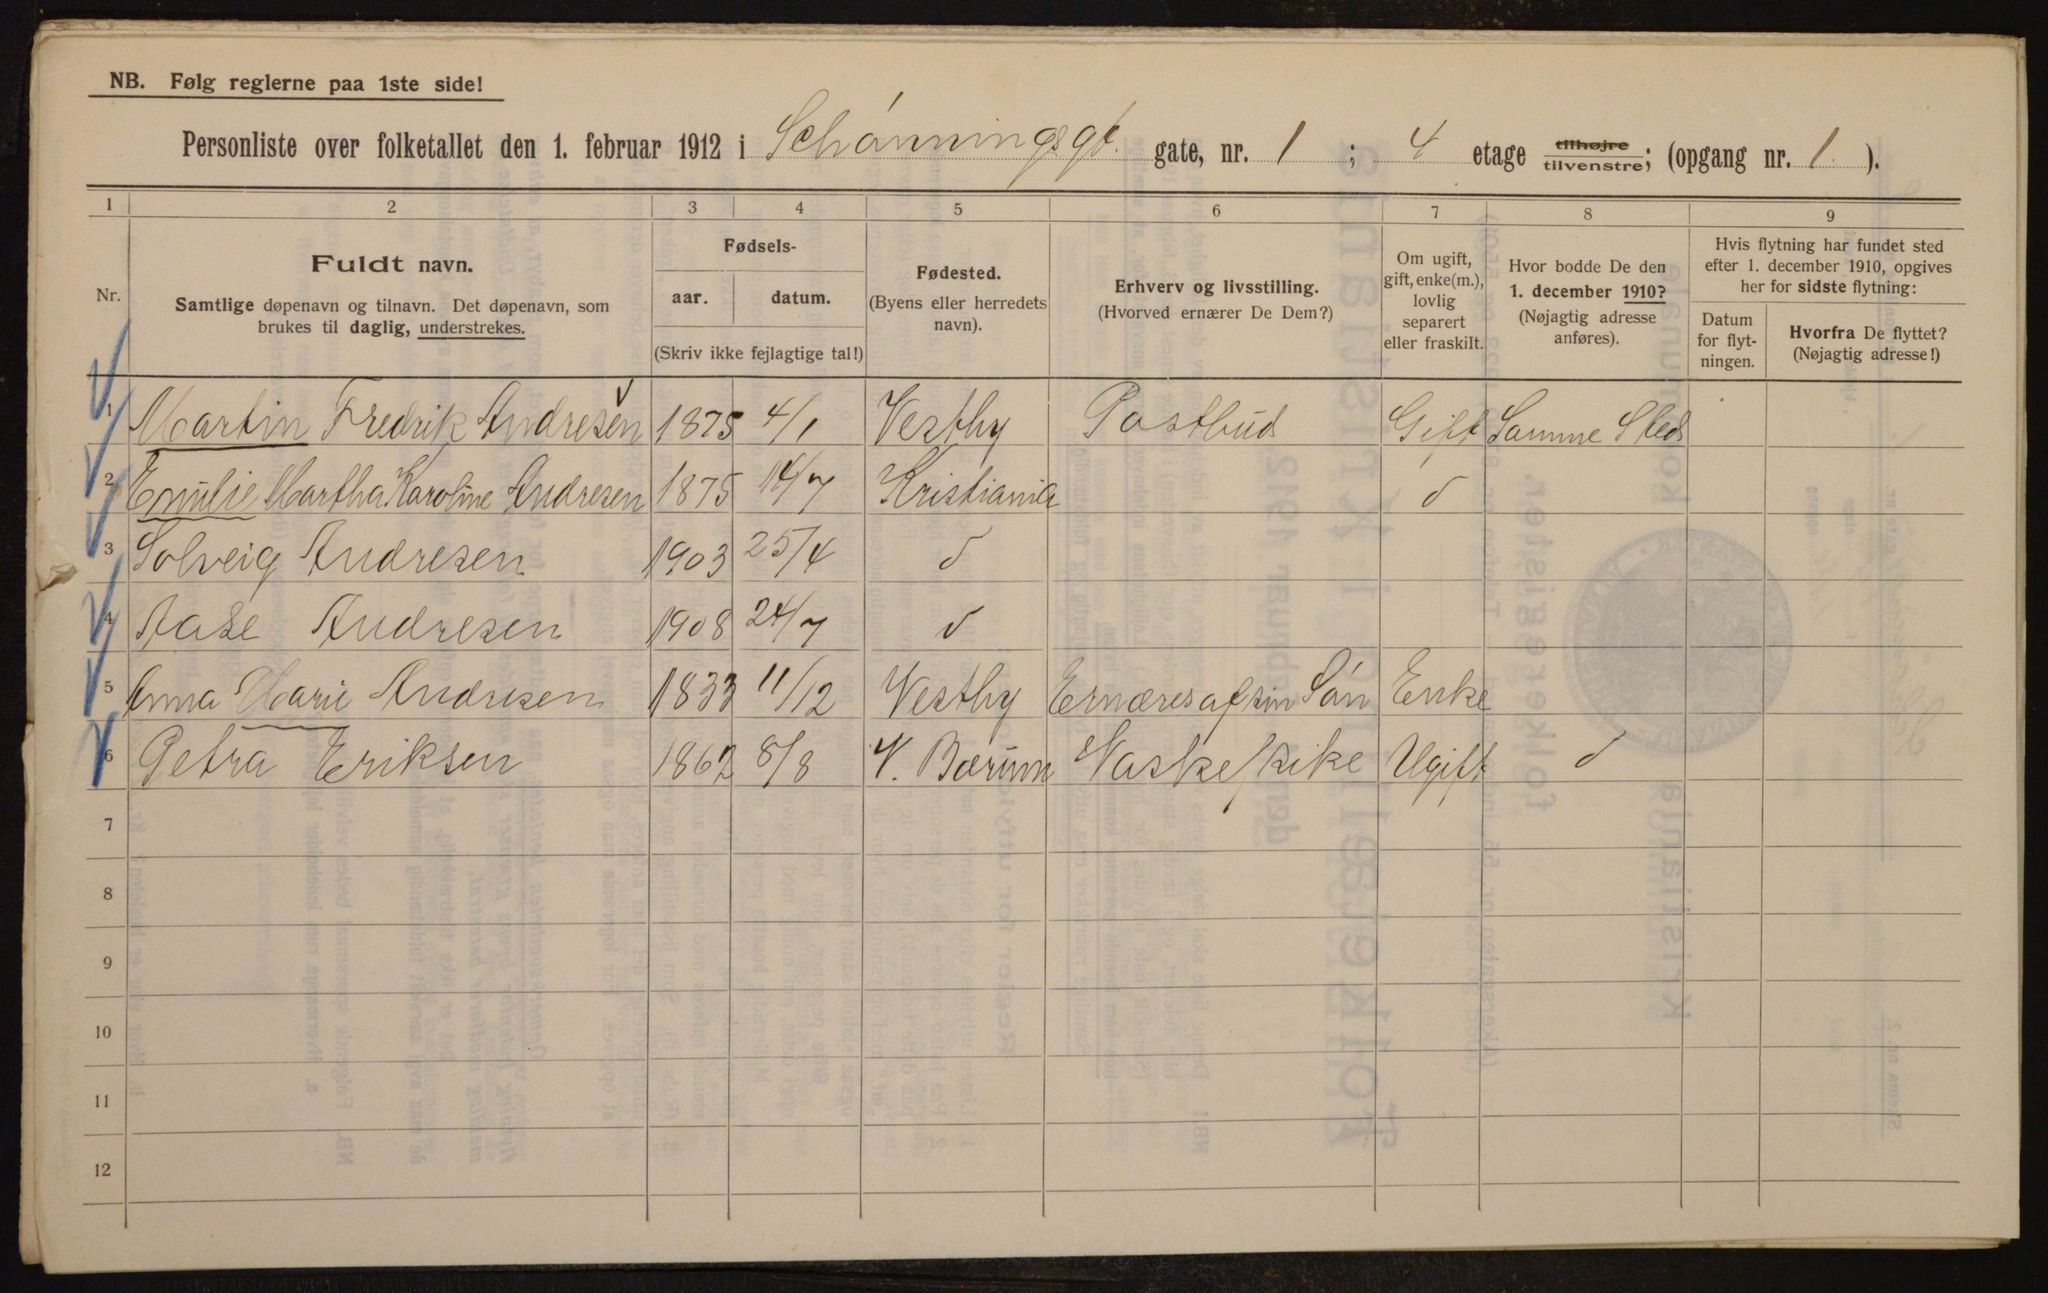 NB. Følg reglerne paa 1ste side!
Personliste over folketallet den 1. februar 1912 i Schönningsgt. gate, nr. 1 ; 4 etage tilhøjre tilvenstre; (opgang nr. 1 ).
1 2 3 4 5 6 7 8 9
Nr.
Fuldt navn.
Samtlige døpenavn og tilnavn. Det døpenavn, som
brukes til daglig, understrekes.
Fødsels-
aar. datum.
(Skriv ikke fejlagtige tal!)
Fødested.
(Byens eller herredets
navn).
Erhverv og livsstilling.
(Hvorved ernærer De Dem?)
Om ugift,
gift, enke(m.),
lovlig
separert
eller fraskilt.
Hvor bodde De den
1. december 1910?
(Nøjagtig adresse
anføres).
Hvis flytning har fundet sted
efter 1. december 1910, opgives
her for sidste flytning:
Datum
for flyt-
ningen.
Hvorfra De flyttet?
(Nøjagtig adresse!)
1 Martin Fredrik Andresen 1875 4/1 Vestby Postbud Gift Samme Sted
2 Emilie Martha Karoline Andresen 1875 14/7 Kristiania d
3 Solveig Andresen 1903 25/4 d
4 Aase Andresen 1908 24/7 d
5 Anna Marie Andresen 1833 11/12 Vestby Ernæres af sin Sön Enke
6 Petra Eriksen 1862 8/8 V. Bærum Vaskepike Ugift d
7
8
9
10
11
12